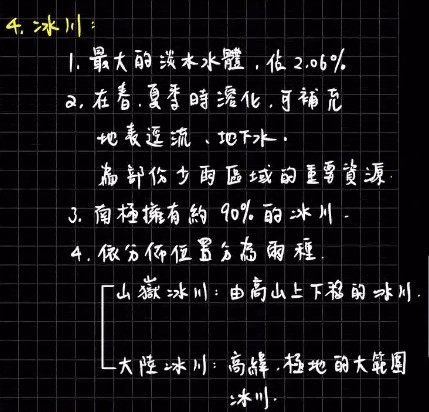 4. 冰川：
1. 最大的淡水水體，佔 2.06%
2. 在春.夏季時溶化，可補充
地表逕流、地下水.
為部份少雨區域的重要資源.
3. 南極擁有約 90% 的冰川.
4. 依分佈位置分為兩種.
山嶽冰川：由高山上下移的冰川.
大陸冰川：高緯.極地的大範圍
冰川.